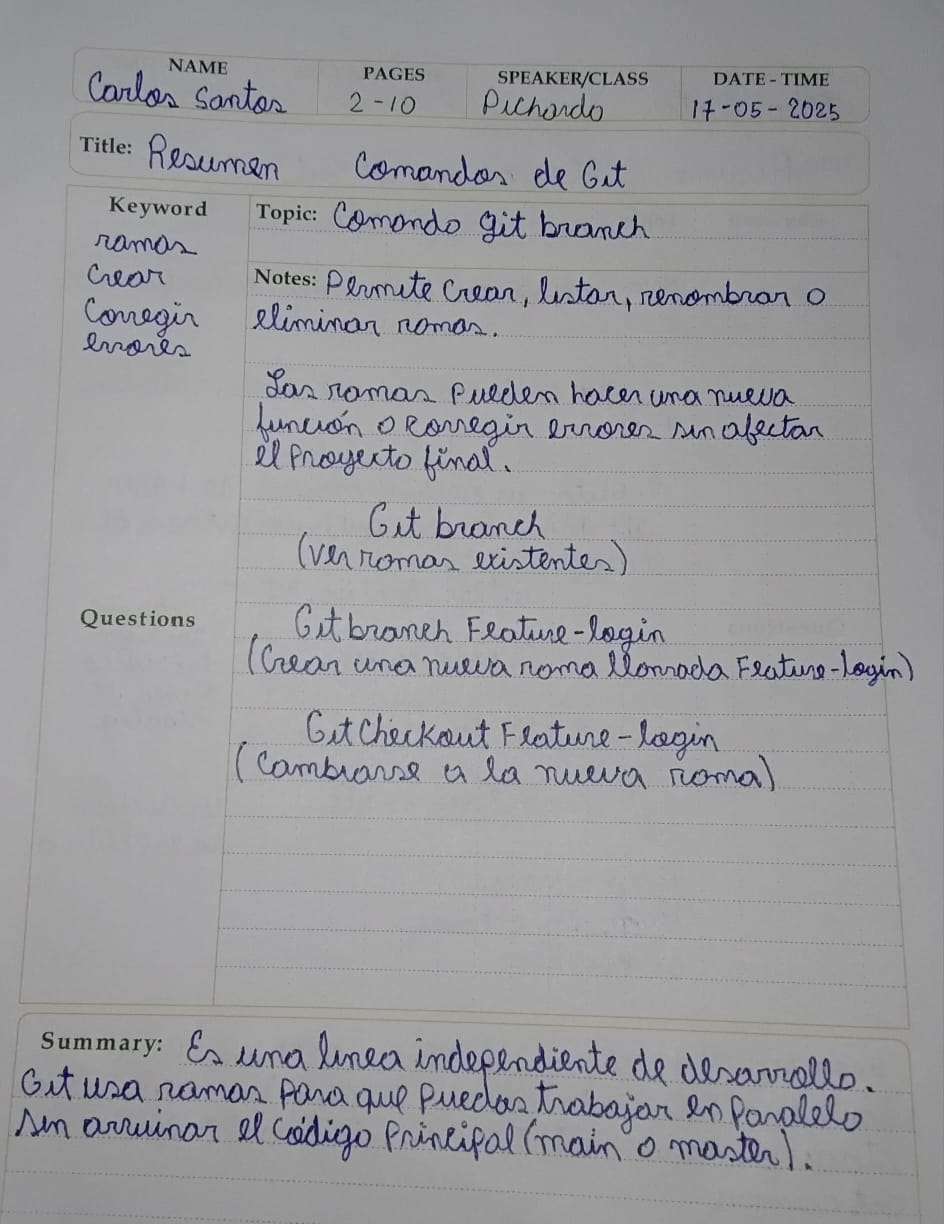 NAME PAGES SPEAKER/CLASS DATE - TIME
Carlos Santos 2-10 Pichardo 17-05-2025
Title: Resumen Comandos de Git
Keyword
ramas
Crear
Corregir
errores
Topic: Comando git branch
Notes: Permite Crear, listar, renombrar o
eliminar ramas.
Las ramas Pueden hacer una nueva
función o Corregir errores sin afectar
el Proyecto final.
Git branch
(ver ramas existentes)
Questions
Git branch Feature-login
(Crear una nueva rama llamada Feature-login)
Git Checkout Feature-login
(Cambiarse a la nueva rama)
Summary: Es una linea independiente de desarrollo.
Git usa ramas Para que Puedas trabajar en Paralelo
sin arruinar el Código Principal (main o master).